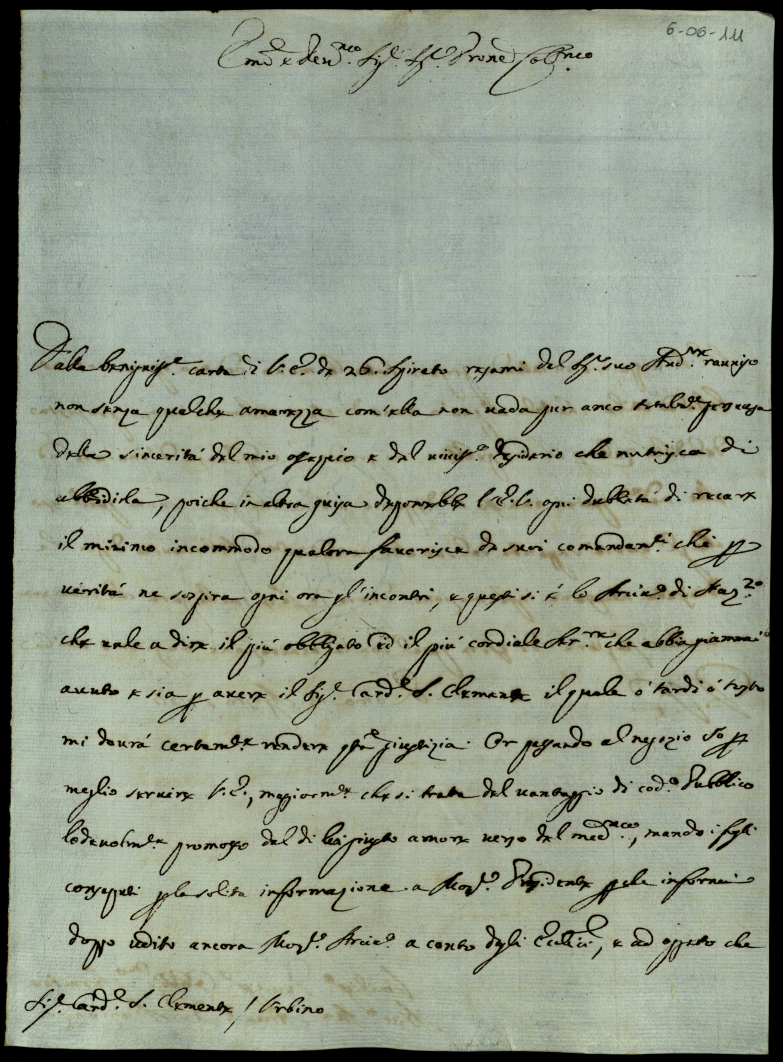 6-06-111
Em̃o e Rev.mo Sig.r Sig.r Prone Col.mo
Dalla benigniss.a carta di V.E. de 26. spirato resami dal Sig.r suo Aud.re ravviso
non senza qualche amarezza com'ella non vada per anco totalm.te persuasa
della sincerità del mio ossequio e del viviss.o desiderio che nutrisco di
ubbidirla, poiche in altra guisa deporrebbe l'E.V. ogni dubbietà di recare
il minimo incommodo qualora favorisce de suoi comandam.ti che p
verità ne sospira ogni ora gl'incontri, e questi si è lo Arciv.o di Naz.zo
che vale a dire il più obbligato ed il più cordiale Ser.re che abbia giammai
avuto e sia p avere il Sig.r Card.e S. Clemente il quale ò tardi ò tosto
mi dovrà certam.te rendere q̃sta giustizia. Or passando al negozio Io p
meglio servire V.E., maggiorm.te che si tratta del vantaggio di cod.o Pubblico
lodevolm.te promosso dal di lei giusto amore verso del med.mo, mando i fogli
consaputi p la solita informazione a Mons.r Presidente p che informi
doppo udito ancora Mons.r Arciv.o a conto degli Ecclici, e ad effetto che
Sig.r Card.e S. Clemente / Urbino